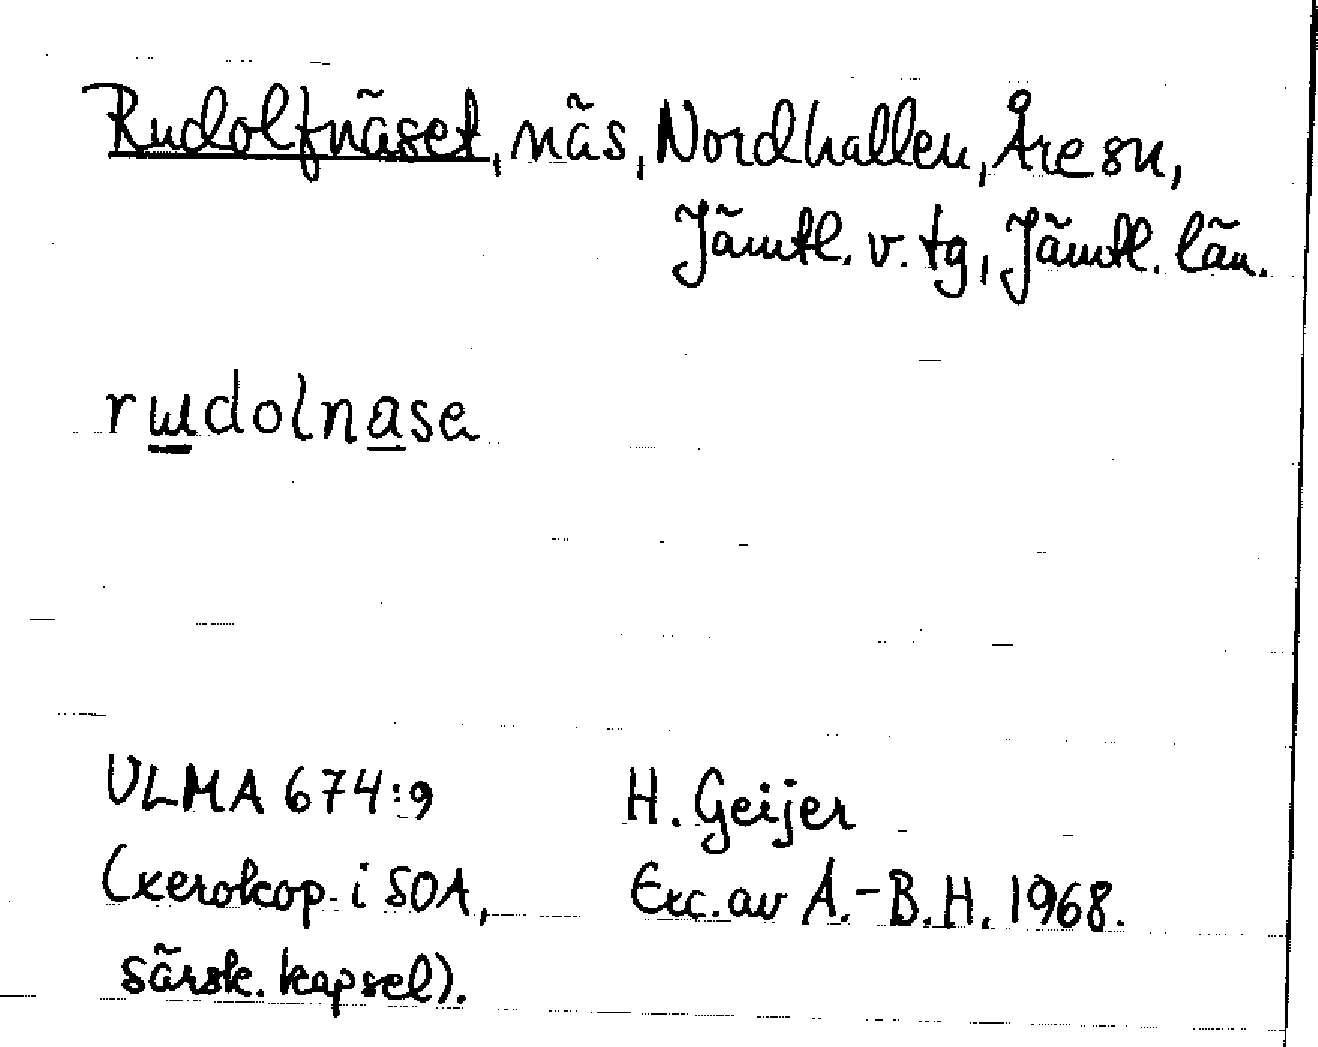 Rudolfnäset, näs, Nordhallen, Åre sn,
Jämtl. v. tg, Jämtl. län.
rɯdolnasa
ULMA 674:9
H. Geijer
(xerokop. i SOA,
Exc. av A.-B.H. 1968.
särsk. kapsel).